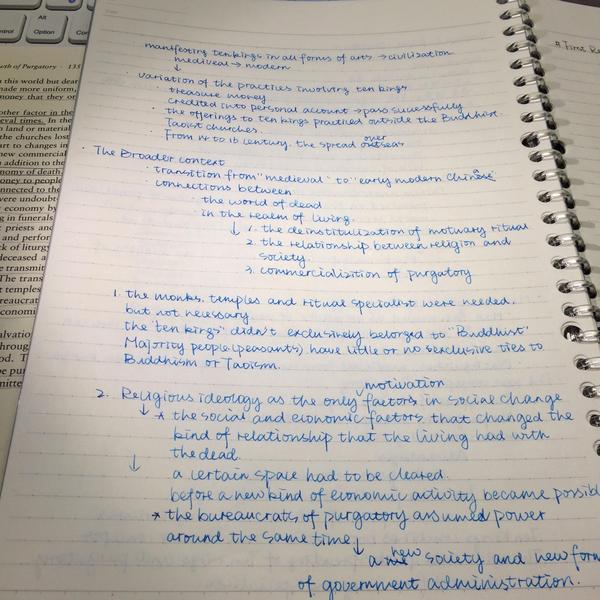 Alt
Option
Con
manifesting ten kings in all forms of arts → civilization
medieval → modern
↓
· variation of the practices involving ten kings
· treasure money
credited into personal account → pass sucessfully
· the offerings to ten kings practiced outside the Buddhist.
Taoist churches.
· From 14 to 16 century. the spread over
outseas
· The Broader context
· transition from "medieval" to "early modern Chinese
· connections between
· the world of dead
· in the realm of living.
↓ 1. the deinstitulization of motuary ritual
2. the relationship between religion and
society.
3. commercialization of purgatory
1. the monks, temples and ritual specialist were needed.
but not necessary.
the "ten kings" didn't exclusively belonged to "Buddhist"
Majority people (peasants) have little or no sexclusive ties to
Buddhism or Taoism.
motivation
2. Religious ideology as the only factors in social change
↓ * the social and economic factors that changed the
kind of relationship that the living had with
the dead.
↓ a certain space had to be cleared.
before a new kind of economic activity became possib
* the bureaucrats of purgatory assumed power
around the same time
↓ a new society and new form
of government administration.
# Time Re
th of Purgatory · 135
this world but dear
made more uniform,
money that they or
other factor in the
eval times. In the
n land or material
the churches lost
art to changes in
new commercial
n addition to the
nomy of death
oney to people
onnected to the
were undoubt
economy by
g in funerals
priests and
and perfor
ck of liturgy
deceased a
e transmit
t temples
reaucrat
Economi
alvatio
hroug
d. T
e pu
mitte